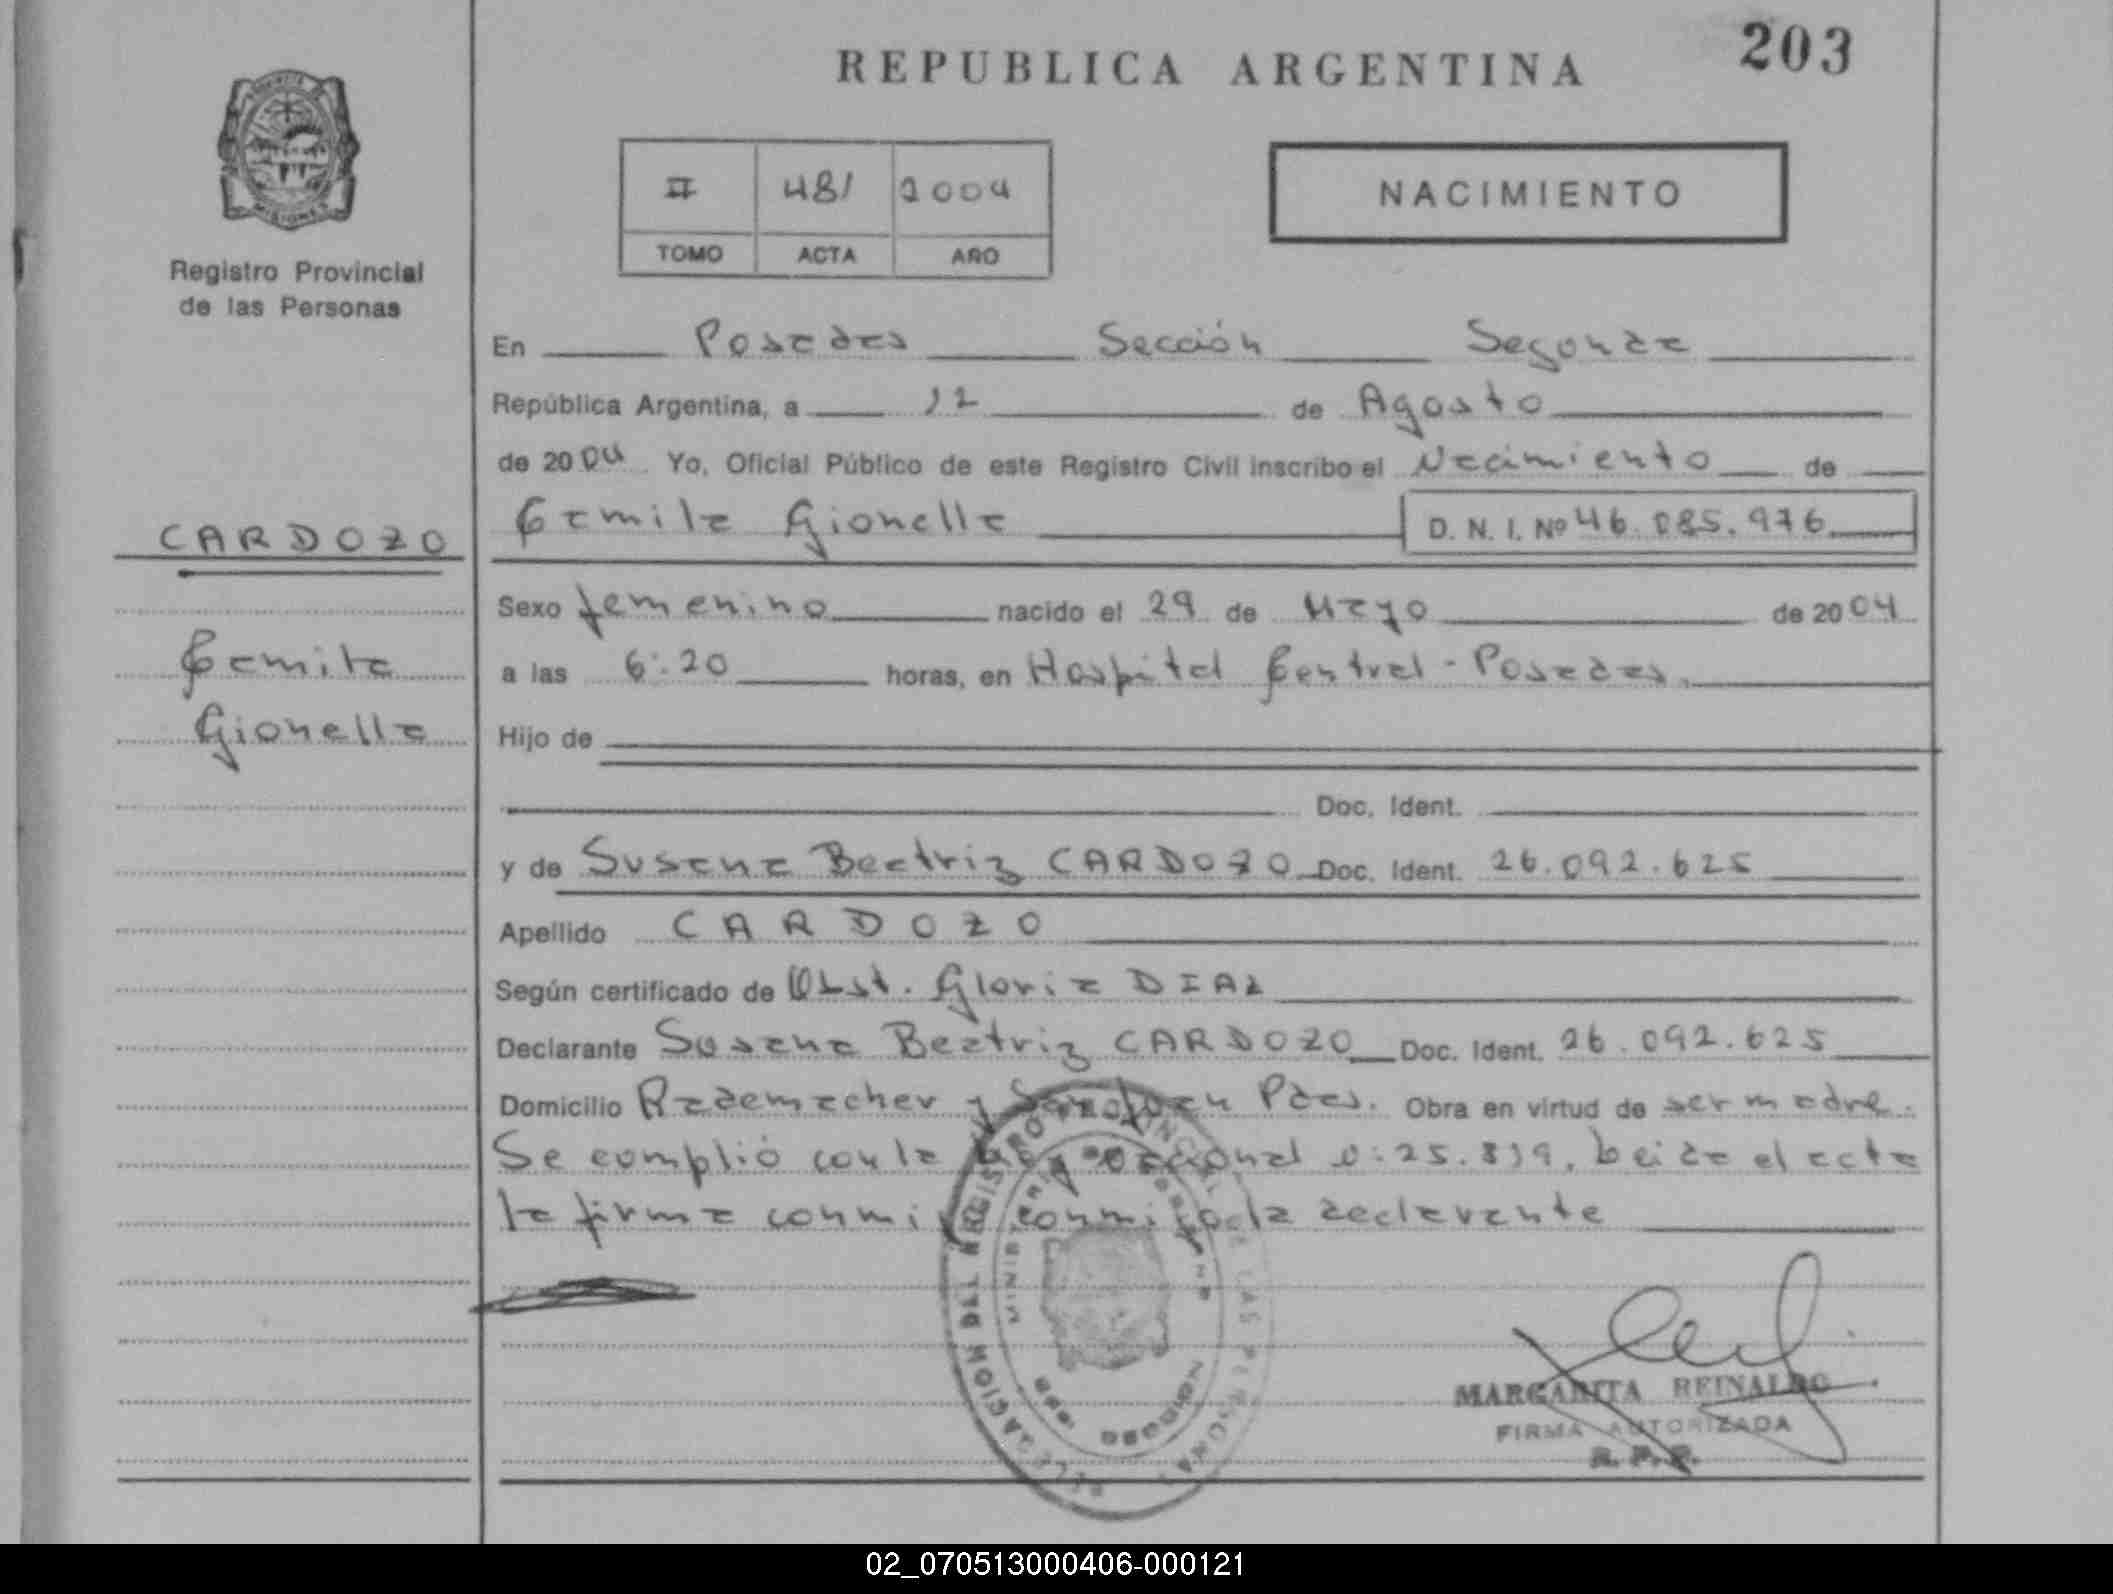 REPUBLICA ARGENTINA
203
PROVINCIA DE
MISIONES
Registro Provincial
de las Personas
II 481 2004
TOMO ACTA AÑO
NACIMIENTO
En Posadas Sección Segunda
República Argentina, a 12 de Agosto
de 2004. Yo, Oficial Público de este Registro Civil inscribo el Nacimiento de
Camila Gionella D. N. I. Nº 46.085.976
CARDOZO
Camila
Gionella
Sexo femenino nacido el 29 de Mayo de 2004
a las 6:20 horas, en Hospital Central - Posadas.
Hijo de
Doc. Ident.
y de Susana Beatriz CARDOZO Doc. Ident. 26.092.625
Apellido CARDOZO
Según certificado de Obst. Gloria DIAZ
Declarante Susana Beatriz CARDOZO Doc. Ident. 26.092.625
Domicilio Rademacher y Pdas. Obra en virtud de ser madre.
Se cumplió con la Ley Nacional n: 25.819. Leida el acta
la firma conmigo la declarante
DELEGACION DEL REGISTRO PROVINCIAL DE LAS PERSONAS
MINISTERIO DE GOBIERNO
MARGARITA REINALDO
FIRMA AUTORIZADA
R. P. P.
02_070513000406-000121